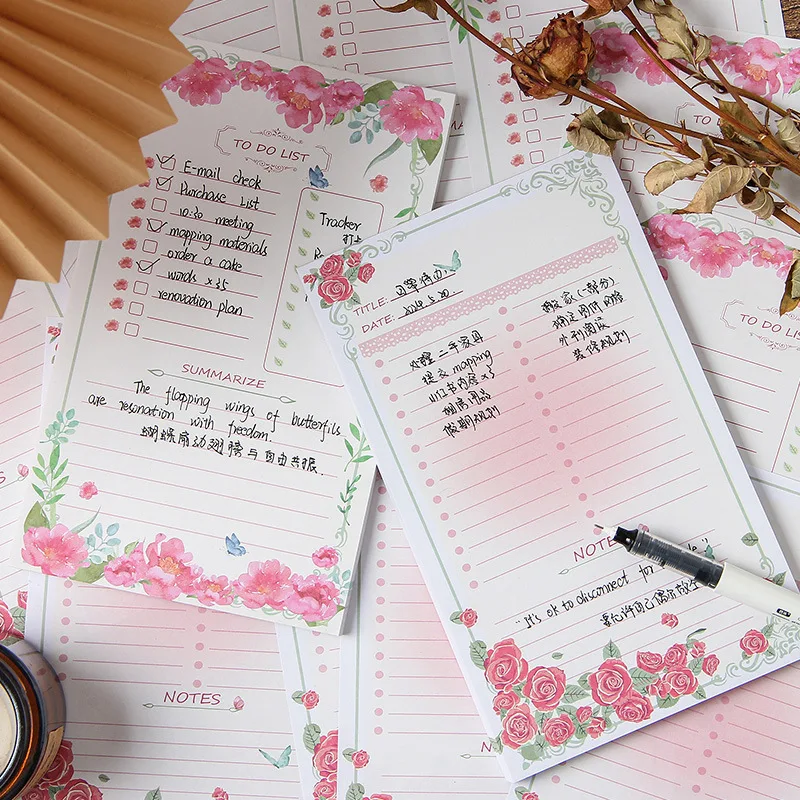 TO DO LIST
E-mail check
Purchase List
10:30 meeting
mapping materials
order a cake
words x35
renovation plan
Tracker
打卡
SUMMARIZE
The flapping wings of butterfils
are resonation with freedom.
蝴蝶扇动翅膀与自由共振.
TITLE: 日常待办.
DATE: 2024.5.20.
处理二手家具
提交mapping
假期规划
搬家(一部分)
外刊阅读
装修规划
NOTES
"It's ok to disconnect for
要允许自己偶尔放空
TO DO LIST
TO DO LIST
NOTES